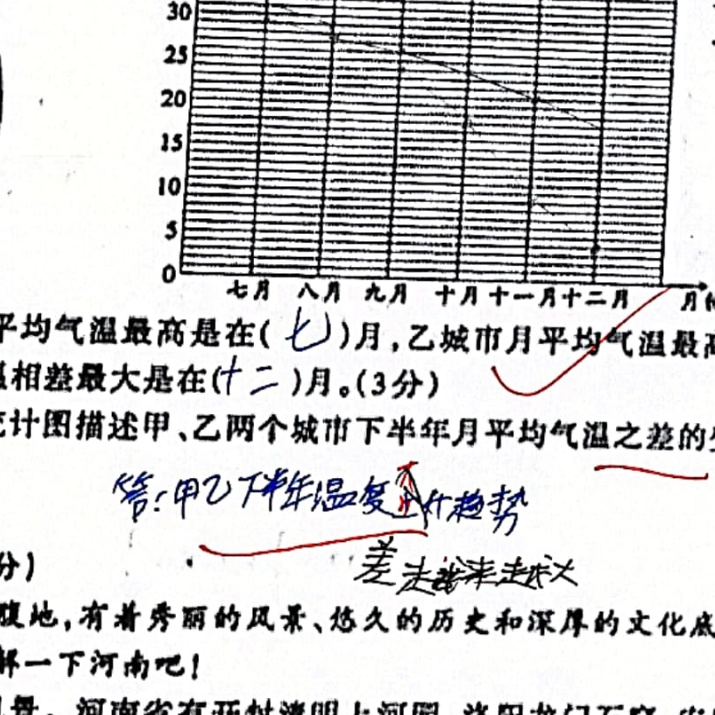 30
25
20
15
10
5
0
七月 八月 九月 十月 十一月 十二月 月
平均气温最高是在(七)月,乙城市月平均气温最高
相差最大是在(十二)月。(3分)
计图描述甲、乙两个城市下半年月平均气温之差的
答:甲乙下半年温 趋势
差
分)
腹地,有着秀丽的风景、悠久的历史和深厚的文化底
解一下河南吧!